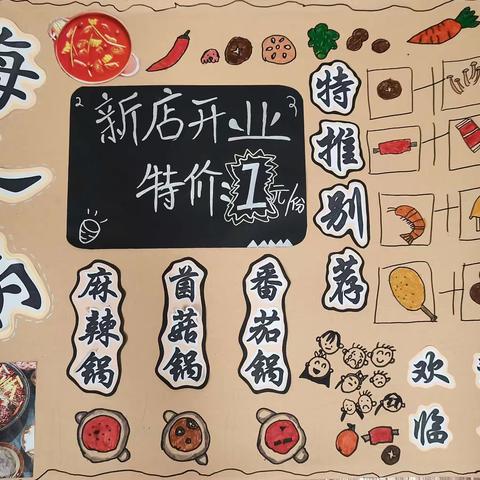 新店开业
特价:1元/份
特推别荐
麻辣锅
首菇锅
番茄锅
欢
临